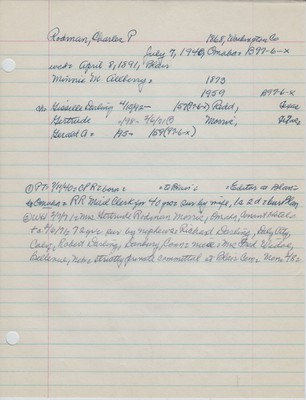 Rodman, Charles P 1868, Washington Co
July 7, 1940, Omaha = B97-6-X
wed = April 8, 1891, Blair
Minnie M. Allbery = 1873
1959 B97-6-X
ch Giselle Darling 4/15/42- 159(97-6-X) Redd,
Gertrude -/98 - 2/6/71 Morris,
Gerald A = 45- 159(97-6-X)
① PT= 7/11/40 = CPR = born = = to Blair = = Editor at Blair =
to Omaha = RR Mail Clerk for 40 yrs = sur by wife, 1s 2d =
② WH 2/9/71 = Mrs Gertrude Rodman Morris, Conant Hotel
= sur by nephews Richard Darling, Daly City,
Calif, Robert Darling, Danbury, Conn = niece = Mrs
Bellevue, Nebr strictly private committal at Blair Cem. Mon 4/82